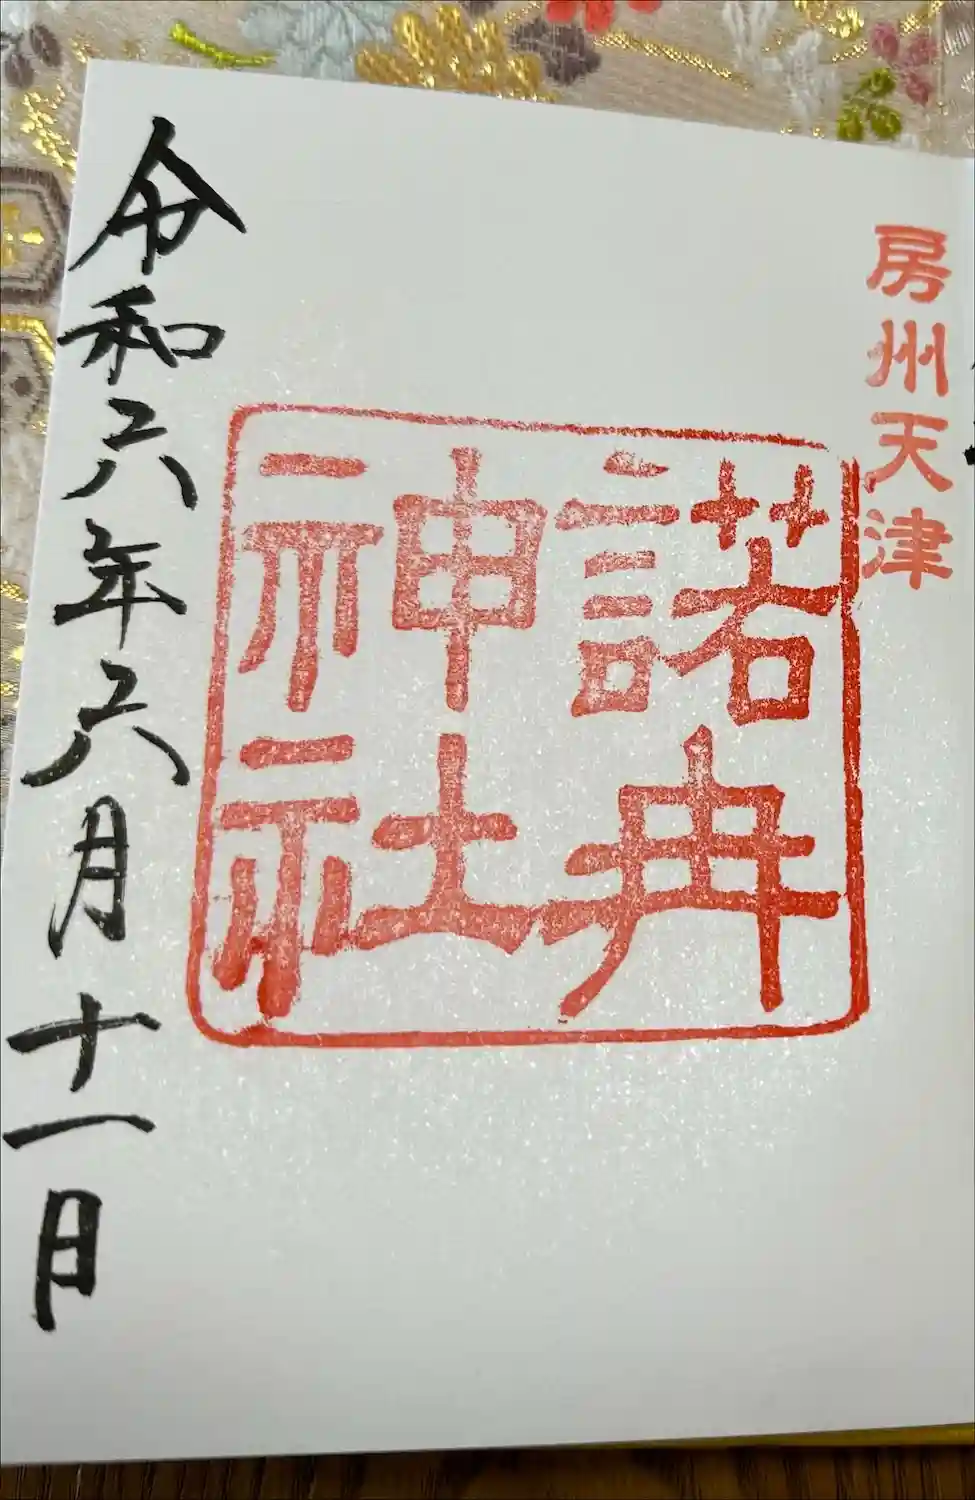 房州天津
諾冉
神社
令和六年六月十一日